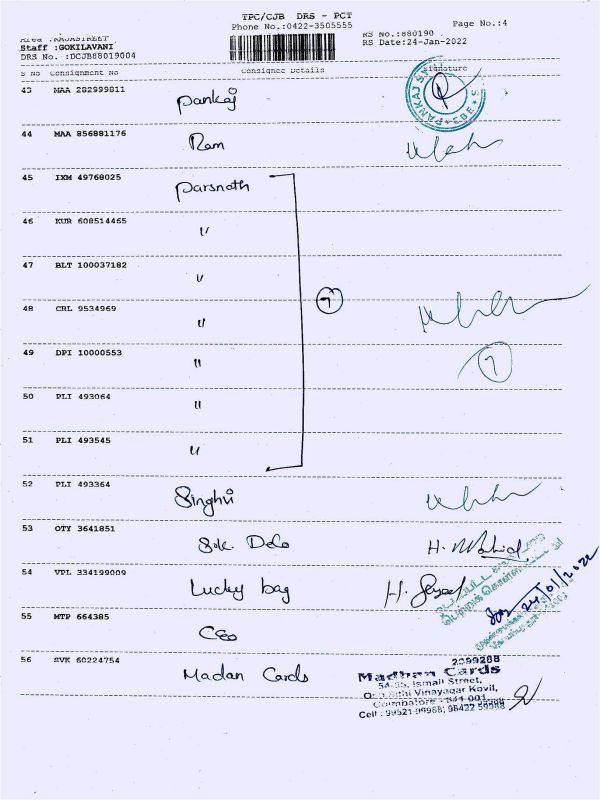 TPC/CJB DRS - PCT
Phone No.:0422-3505555
Page No.:4
Staff :GOKILAVANI
DRS No. :DCJB88019004
RS No.:880190
RS Date:24-Jan-2022
S No Consignment No Consignee Details Signature
43 MAA 282999811 Pankaj
PANKAJ
44 MAA 856881176 Ram
45 IXM 49768025 Parsnath
46 KUR 608514465 "
47 BLT 100037182 "
48 CRL 9534969 " 7
49 DPI 10000553 " 7
50 PLI 493064 "
51 PLI 493545 "
52 PLI 493364 Singhvi
53 OTY 3641851
54 VPL 334199009 Lucky bag
24/01/2022
55 MTP 664385 CEO
56 SVK 60224754 Madan Cards
2399288
Madhan Cards
54-55, Ismail Street,
Vinayagar Kovil,
Coimbatore - 641 001.
Cell : 99521 99988, 98422 59988